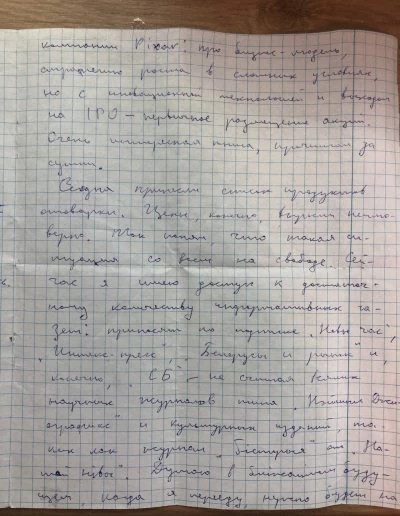 компании Pixar: про бизнес-модель,
стратегию роста в сложных условиях,
но с инновационной технологией и выходом
на IPO – первичное размещение акций.
Очень интересная книга, прочитал за
сутки.
Сегодня принесли список продуктов
отоварки. Цены, конечно, выросли неимо-
верно. Так понял, что такая си-
туация со всем на свободе. Сей-
час я имею доступ к достаточ-
ному количеству информативных га-
зет: приносят по подписке „Новы час",
„Интекс-пресс", „Белорусы и рынок" и,
конечно, „СБ" – не считая
научных журналов типа „Нэшнл Джи-
ографик" и культурных изданий, та-
ких как журнал „Бястрыя" от „На-
шай Нівы". Думаю в ближайшем буду-
щем когда я перееду, нужно будет на